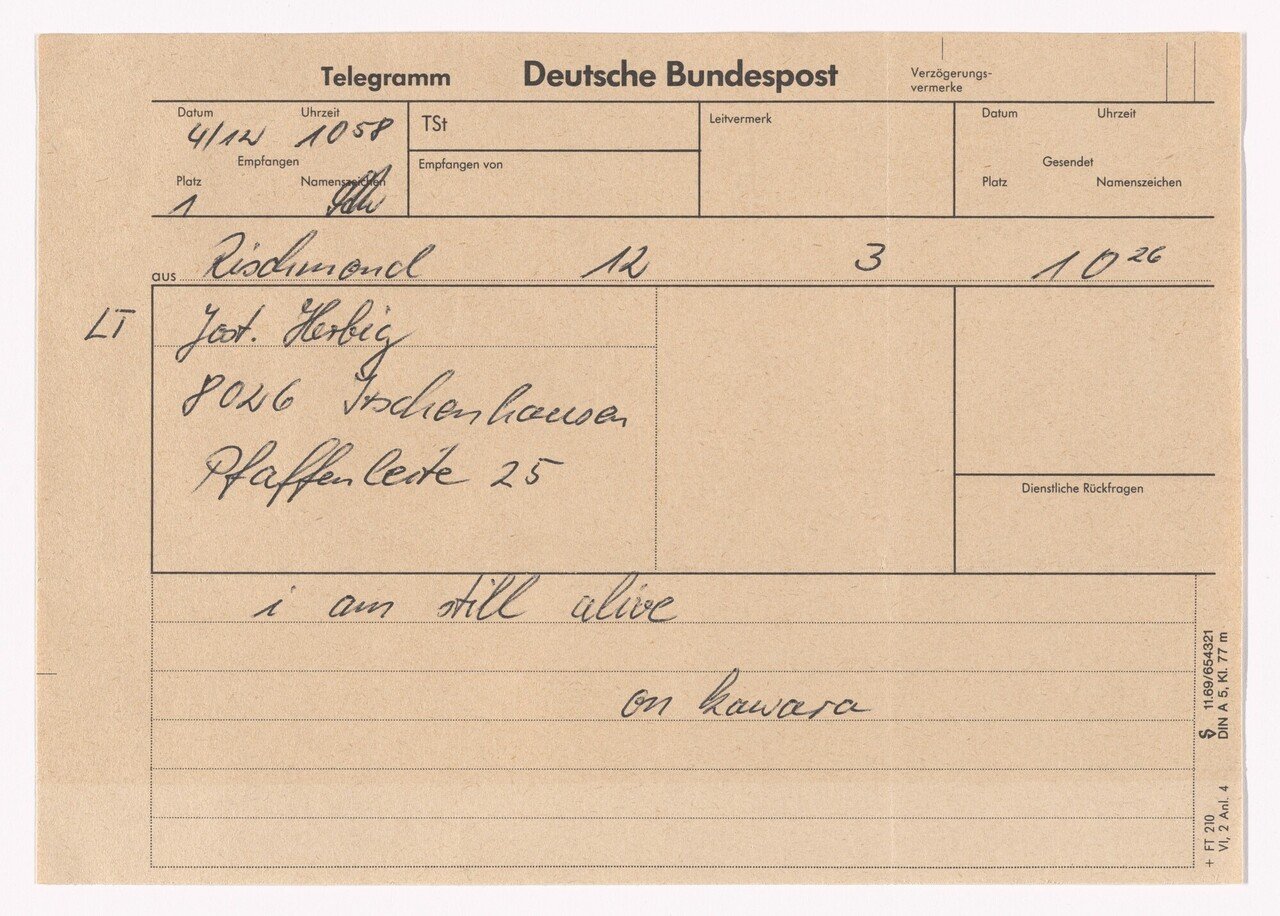 Telegramm Deutsche Bundespost Verzögerungs-
vermerke
Datum Uhrzeit
4/12 10 58
Empfangen
Platz Namenszeichen
1
TSt
Empfangen von
Leitvermerk
Datum Uhrzeit
Gesendet
Platz Namenszeichen
aus Rischmond 12 3 10 26
LT Jost. Herbig
8026 Itschenhausen
Pfaffenleite 25
Dienstliche Rückfragen
i am still alive
on kawara
11.69/654321
DIN A 5, Kl. 77 m
+ FT 210
VI, 2 Anl. 4